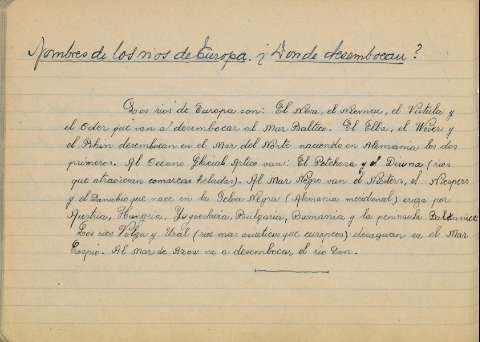 Nombres de los ríos de Europa. ¿Donde desembocan?
Los rios de Europa son: El Neva, el Niemen, el Vistula y
el Oder que van a desembocar al Mar Baltico. El Elba, el Wéser y
el Rhin desembocan en el Mar del Norte naciendo en Alemania los dos
primeros. Al Océano Glacial Artico van: El Petchora y el Duina (rios
que atraviesan comarcas heladas). Al Mar Negro van el Niester, el Nieper
y el Danubio que nace en la Selva Negra (Alemania meridional) riega por
Austria, Hungria, Yugoeslavia, Bulgaria, Rumania y la peninsula Balkanica
Los rios Volga y Ural (rios mas asiaticos que europeos) desaguan en el Mar
Caspio. Al Mar de Azow va a desembocar el rio Don.